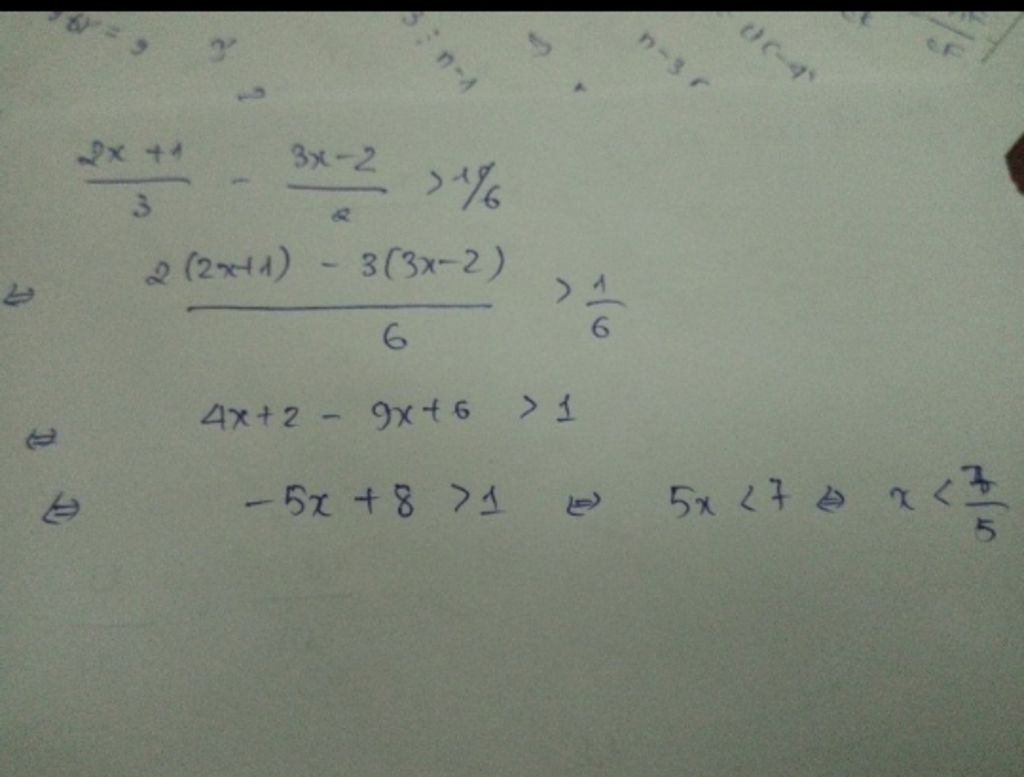 (2x+1)/3 - (3x-2)/2 > 1/6
⇔ (2(2x+1) - 3(3x-2))/6 > 1/6
⇔ 4x+2 - 9x+6 > 1
⇔ -5x+8 > 1 ⇔ 5x < 7 ⇔ x < 7/5